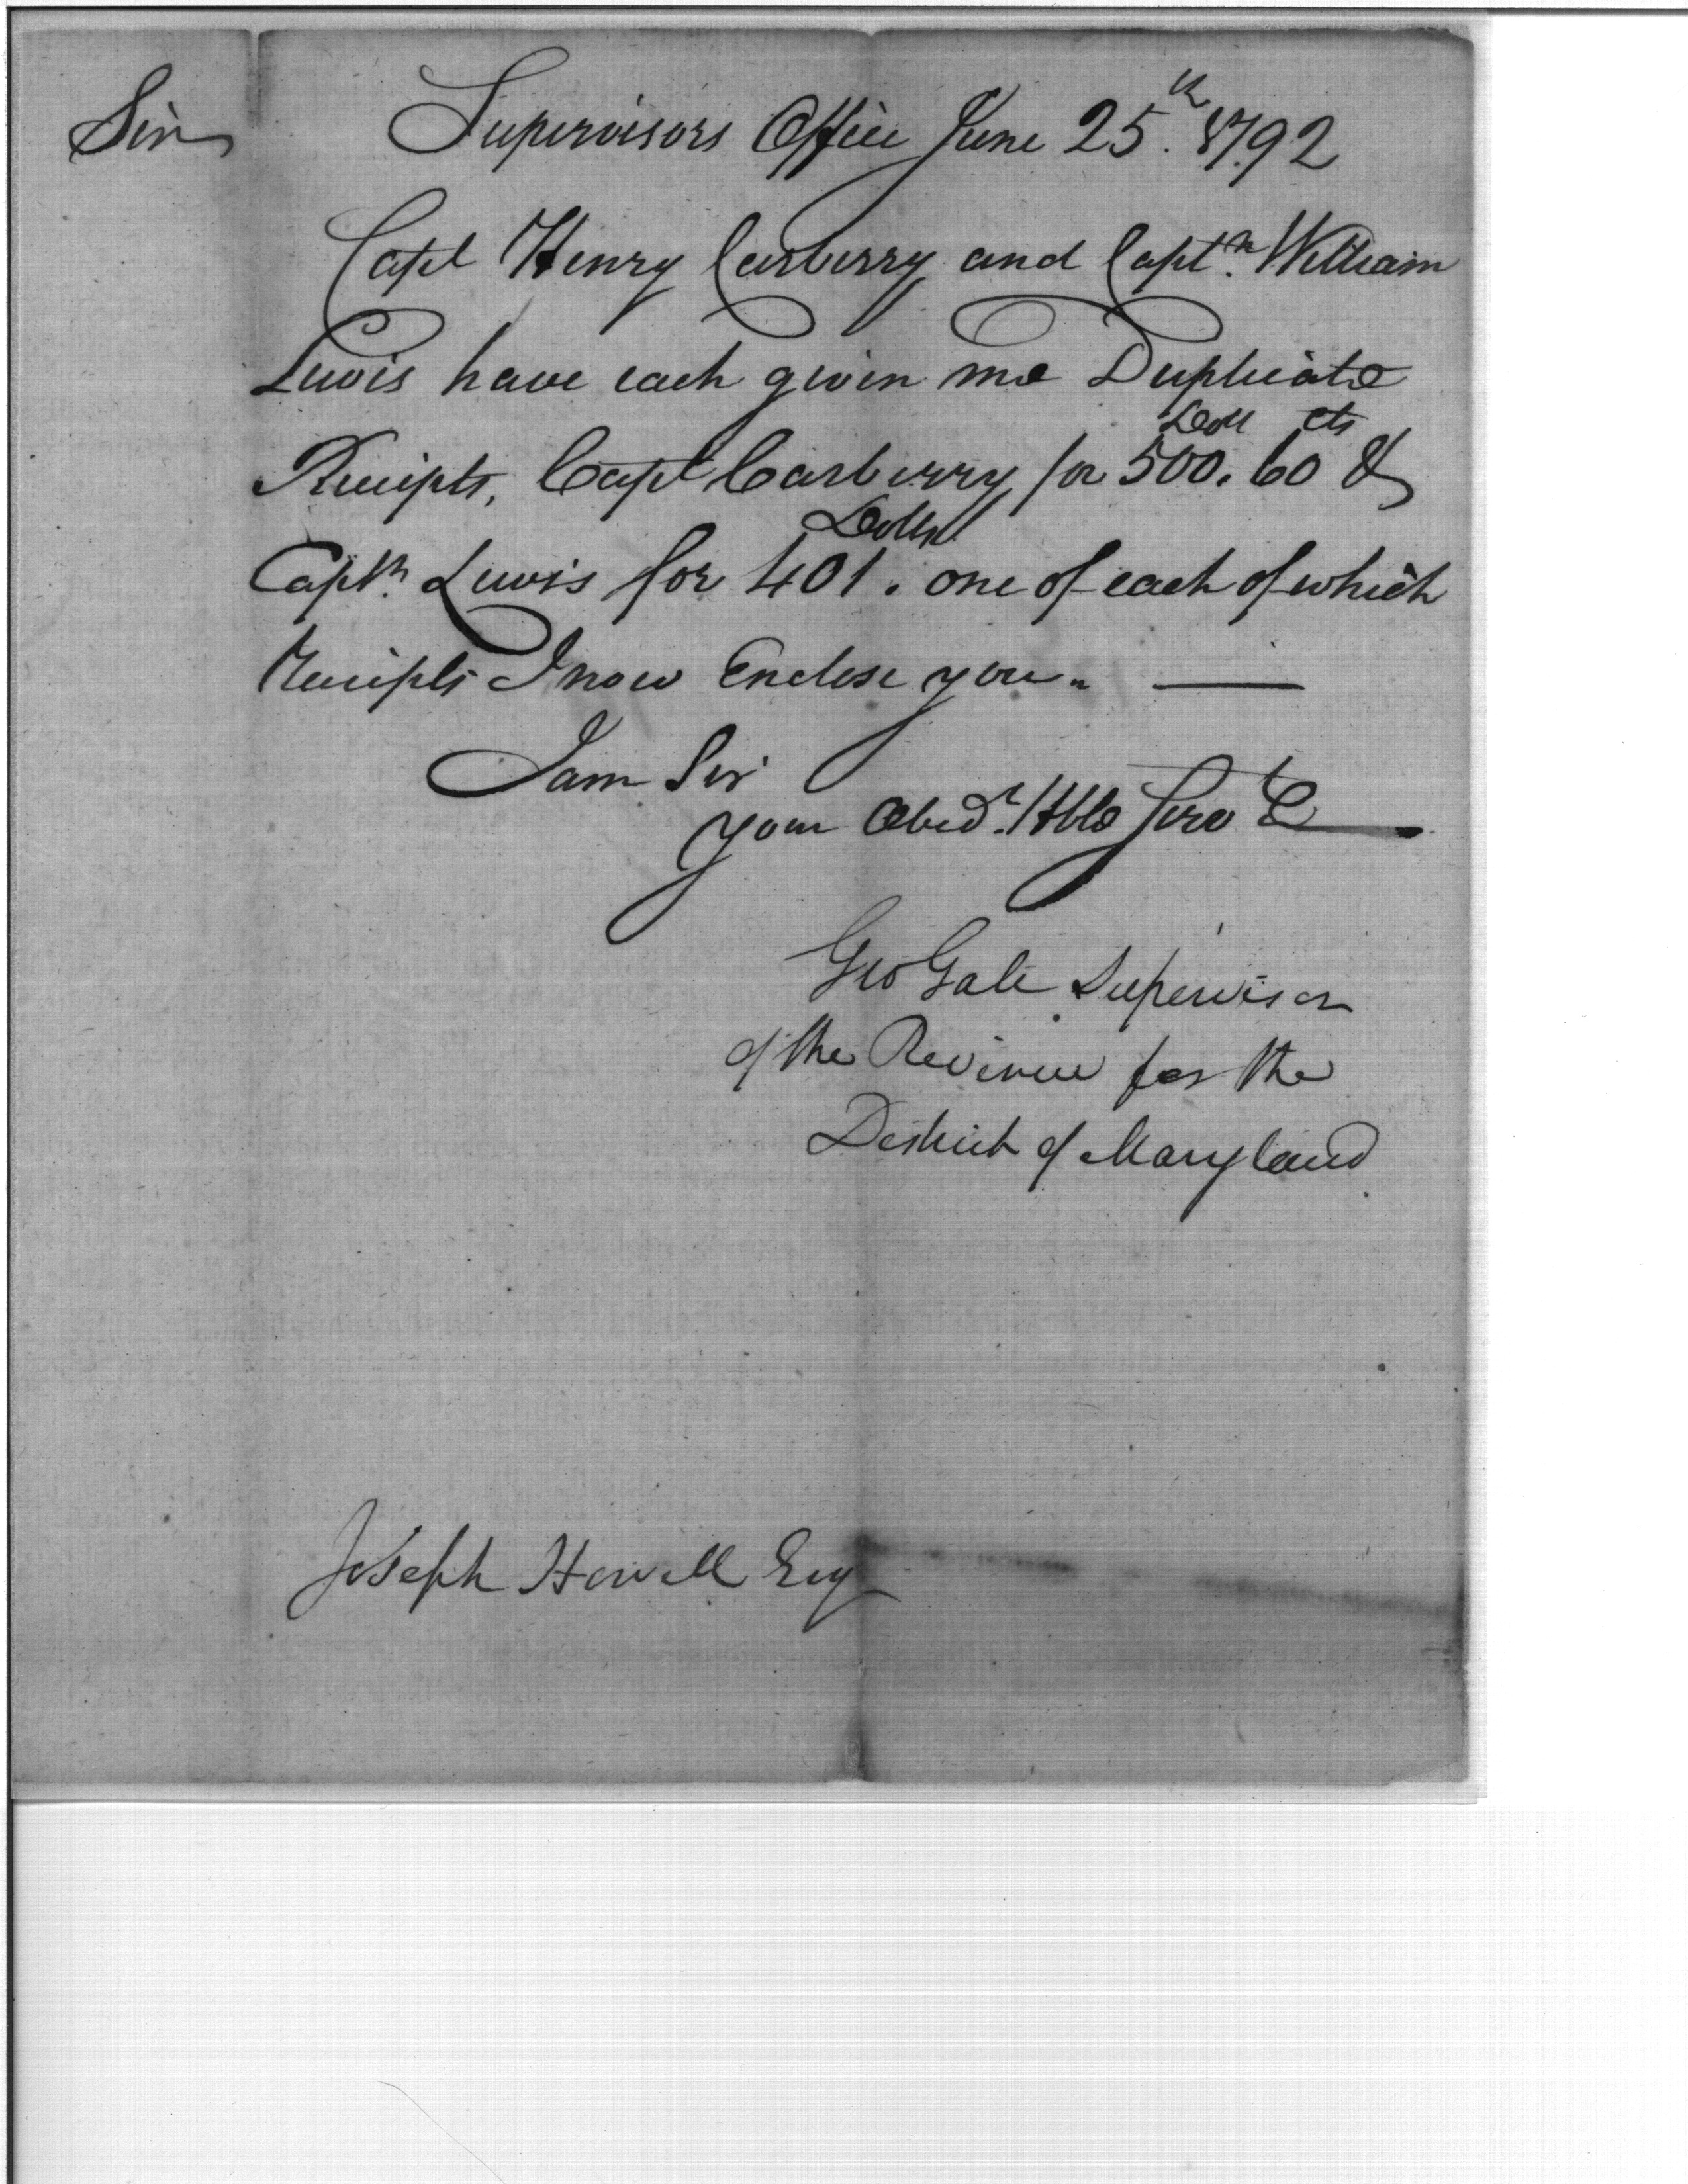 Sir
Supervisors Office June 25th 1792
Capt Henry Carberry and Captn. William
Lewis have each given me Duplicate
Doll cts
Receipts, Capt Carberry for 500. 60 &
Dolls
Captn. Lewis for 401. one of each of which
Receipts I now Enclose you. —
I am Sir
your Obedt. Hble Serv t
Geo Gale Supervisor
of the Revenue for the
District of Maryland
Joseph Howell Esq